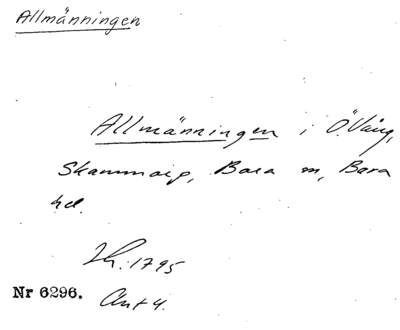 Allmänningen
Allmänningen i Ö. Vång,
Skammarp, Bara sn, Bara
hd.
1795
Nr 6296.